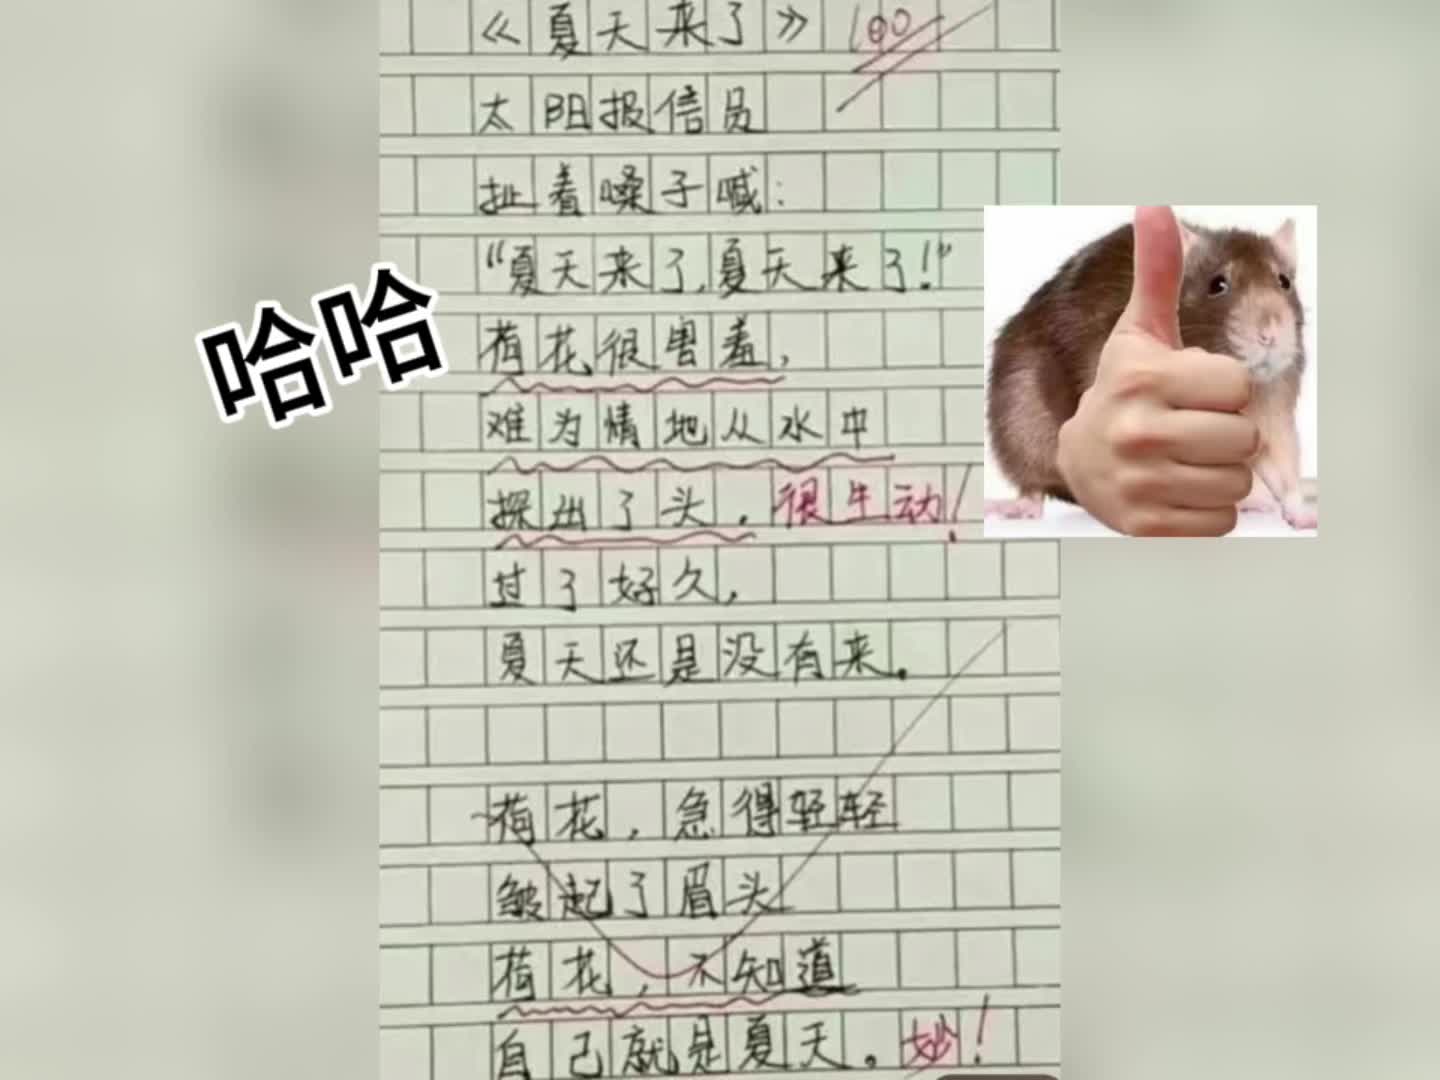 《夏天来了》 100
太阳报信员
扯着嗓子喊：
“夏天来了，夏天来了！”
哈哈
荷花很害羞，
难为情地从水中
探出了头。很生动！
过了好久，
夏天还是没有来。
荷花，急得轻轻
皱起了眉头
荷花，不知道
自己就是夏天。妙！